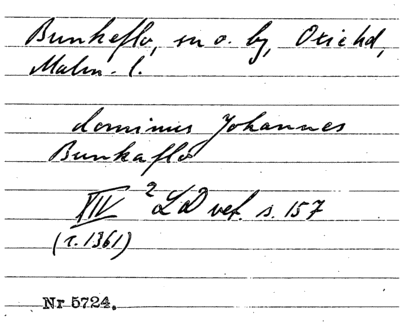 Bunkeflo, sn o. by, Oxie hd,
Malm. l.
dominus Johannes
Bunkaflo
XIV 2 LD vet. s. 157
(c. 1361)
Nr 5724.